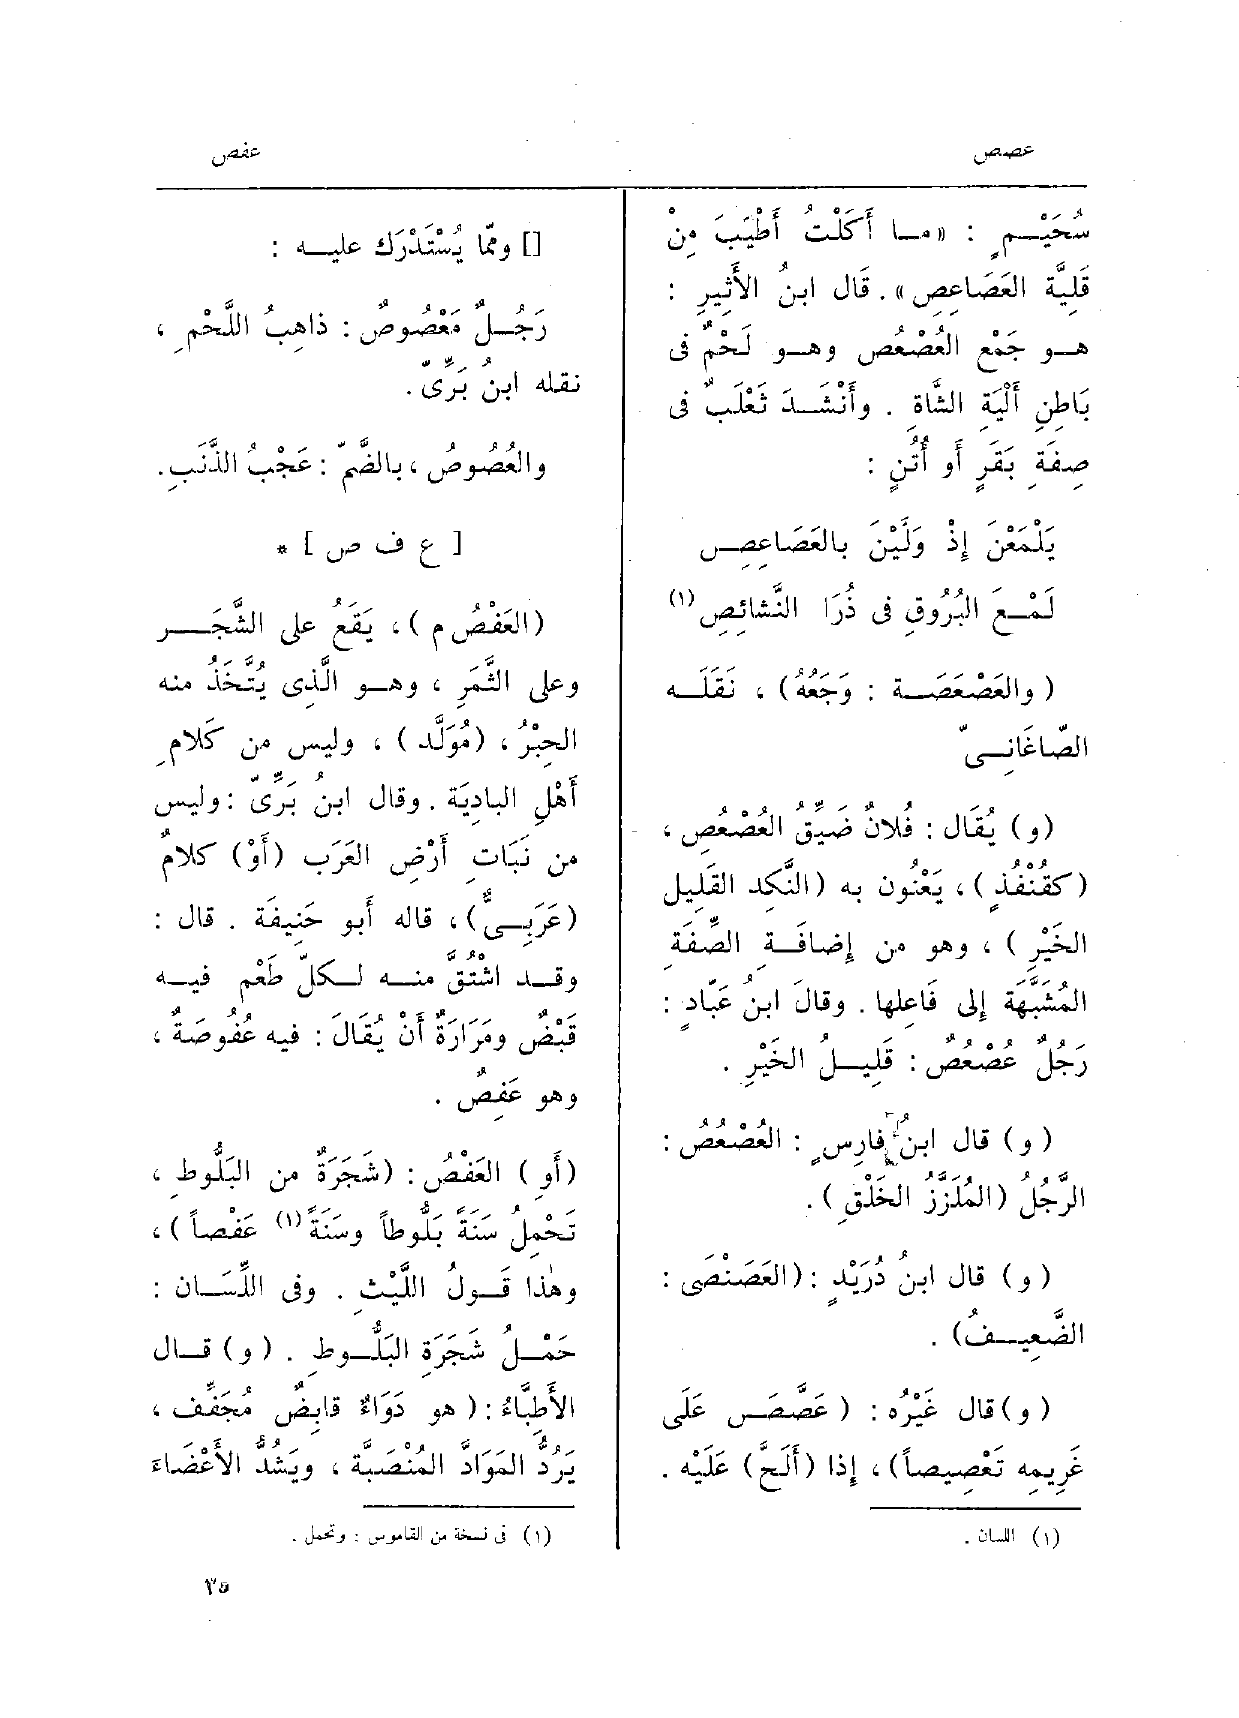 عصص
عفص
سُحَيْــمٍ : «مــا أَكَلْتُ أَطْيَبَ مِنْ
قَلِيَّةِ العَصَاعِصِ» . قَال ابنُ الأَثِيرِ :
هــو جَمْع العُصْعُص وهــو لَحْمٌ فى
بَاطِنِ أَلْيَةِ الشَّاة . وأَنْشَــدَ ثَعْلَبٌ فى
صِفَةِ بَقَرٍ أَو أُتُنٍ :
يَلْمَعْنَ إِذْ وَلَّيْنَ بالعَصَاعِصِ
لَمْــعَ البُرُوقِ فى ذُرَا النَّشائِصِ (١)
( والعَصْعَصَــة : وَجَعُهُ ) ، نَقَلَــه
الصّاغَانِــىّ
(و) يُقَال : فُلانٌ ضَيِّقُ العُصْعُصِ ،
(كقُنْفُذٍ) ، يَعْنُون به (النَّكِد القَلِيل
الخَيْرِ ) ، وهو من إِضافَــةِ الصِّفَةِ
المُشَبَّهَة إِلى فَاعلِها . وقالَ ابنُ عَبّادٍ :
رَجُلٌ عُصْعُصٌ : قَلِيــلُ الخَيْرِ .
( و) قال ابنُ فارِسٍ : العُصْعُصُ :
الرَّجُلُ (المُلَزَّزُ الخَلْقِ ) .
( و) قال ابنُ دُرَيْدٍ : (العَصَنْصَى :
الضَّعِيــفُ) .
( و) قال غَيْرُه : ( عَصَّصَ عَلَى
غَرِيمِه تَعْصِيصاً) ، إِذا (أَلَحَّ) عَلَيْه .
(١) اللسان .
[] وممّا يُسْتَدْرَك عليــه :
رَجُــلٌ مَعْصُوصٌ : ذاهِبُ اللَّحْمِ ،
نقله ابن بَرِّىّ .
والعُصُوصُ ، بالضَّمّ : عَجْبُ الذَّنَبِ .
[ ع ف ص ] *
(العَفْصُ م ) ، يَقَعُ على الشَّجَــرِ
وعلى الثَّمَرِ ، وهــو الَّذِى يُتَّخَذُ منه
الحِبْرُ ، (مُوَلَّد ) ، وليس من كَلامِ
أَهْلِ البادِيَة . وقال ابنُ بَرِّىّ : وليس
من نَبَاتِ أَرْضِ العَرَب (أَوْ) كلامٌ
(عَرَبِــىٌّ) ، قاله أَبو حَنِيفَة . قال :
وقــد اشْتُقَّ منــه لــكلّ طَعْمٍ فيــه
قَبْضٌ ومَرَارَةٌ أَنْ يُقَالَ : فيه عُفُوصَةٌ ،
وهو عَفِصٌ .
(أَو ) العَفْصُ : (شَجَرَةٌ من البَلُّوطِ ،
تَحْمِلُ سَنَةً بَلُّوطاً وسَنَةً (١) عَفْصاً ) ،
وهٰذا قَــولُ اللَّيْثِ . وفى اللِّسَــان :
حَمْــلُ شَجَرَةِ البَلُّــوطِ . ( و) قــال
الأَطِبَّاءُ : ( هو دَوَاءٌ قابِضٌ مُجَفِّف ،
يَرُدُّ المَوَادَّ المُنْصَبَّة ، ويَشُدُّ الأَعْضَاءَ
(١) فى نسخة من القاموس : وتحمل .
٣٥